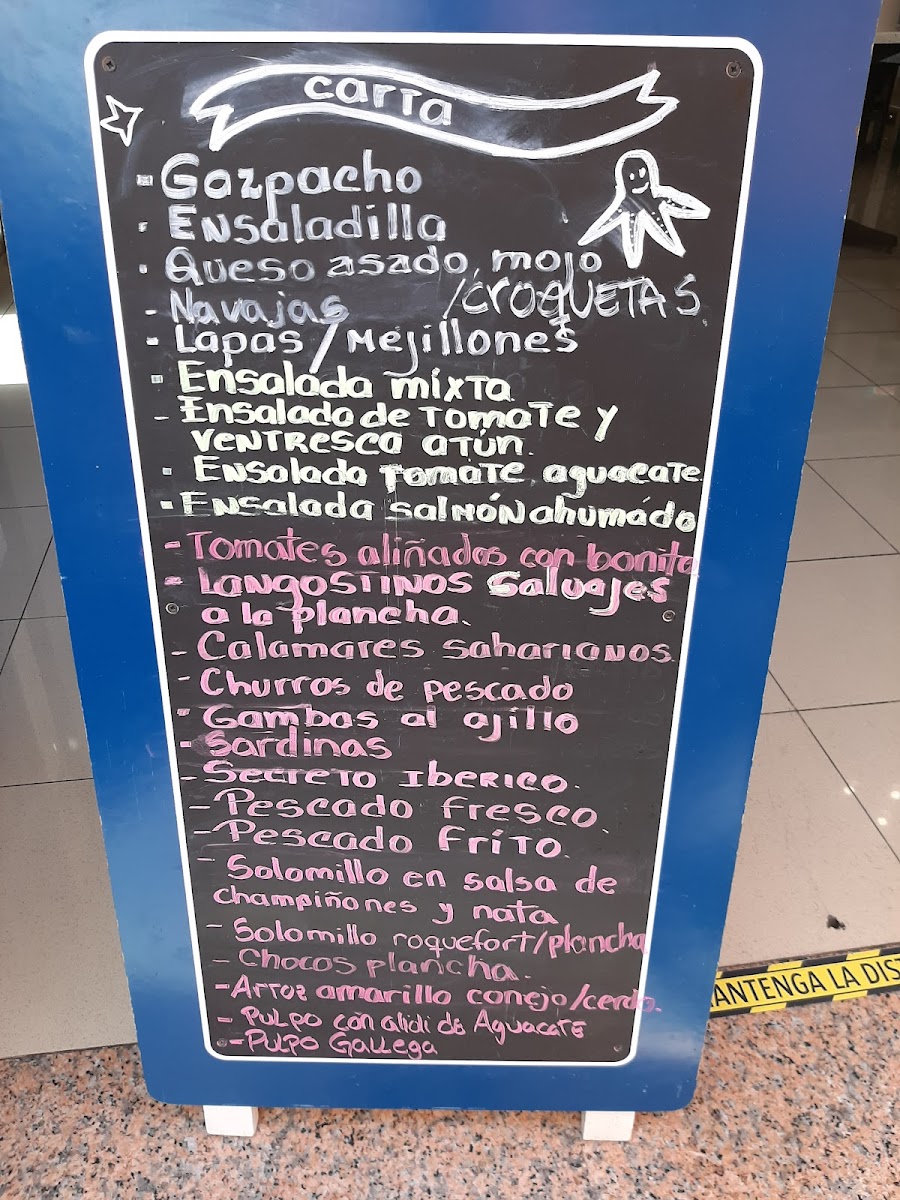 carta
- Gozpacho
- Ensaladilla
- Queso asado, mojo
- Navajas /CROQUETAS
- Lapas / Mejillones
- Ensalada mixta
- Ensalada de Tomate y
ventresca atún.
- Ensalada Tomate aguacate
- Ensalada salmón ahumado
- Tomates aliñados con bonito
- Langostinos Salvajes
a la plancha.
- Calamares saharianos.
- Churros de pescado
- Gambas al ajillo
- Sardinas
- Secreto Iberico.
- Pescado fresco
- Pescado frito.
- Solomillo en salsa de
champiñones y nata
- Solomillo roquefort/plancha
- Chocos plancha.
- Arroz amarillo conejo/cerdo.
- Pulpo con alioli de Aguacate
- Pulpo Gallega
MANTENGA LA DIS